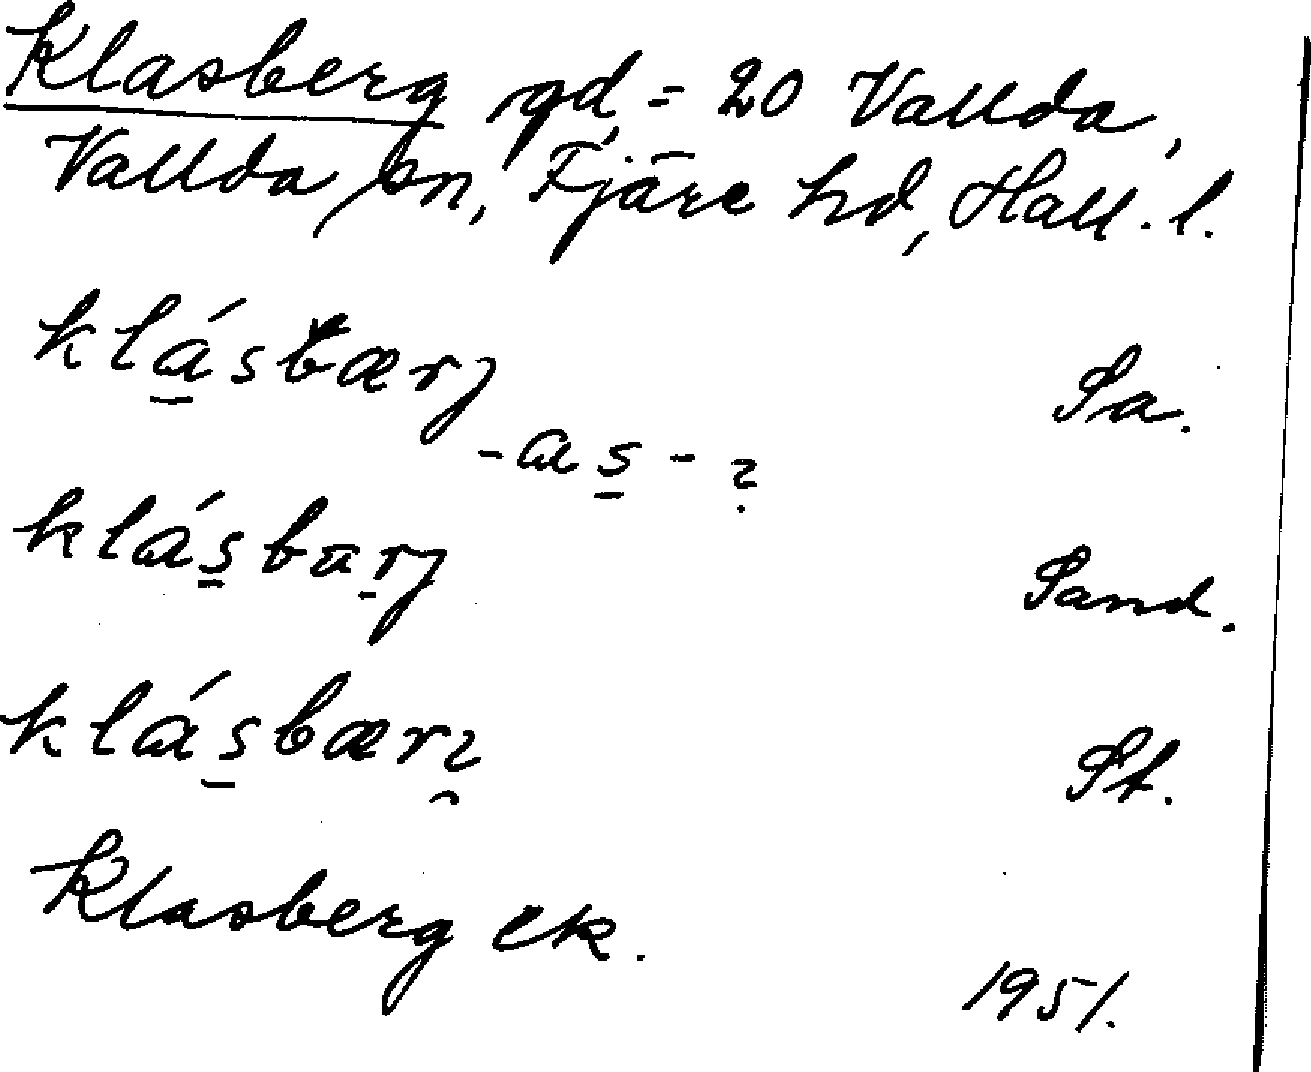 Klasberg gd, = 20 Vallda,
Vallda sn, Fjäre hd, Hall. l.
klásbærj Sa.
-as- ?
klásbärj Sand.
klásbæri St.
Klasberg ek.
1951.